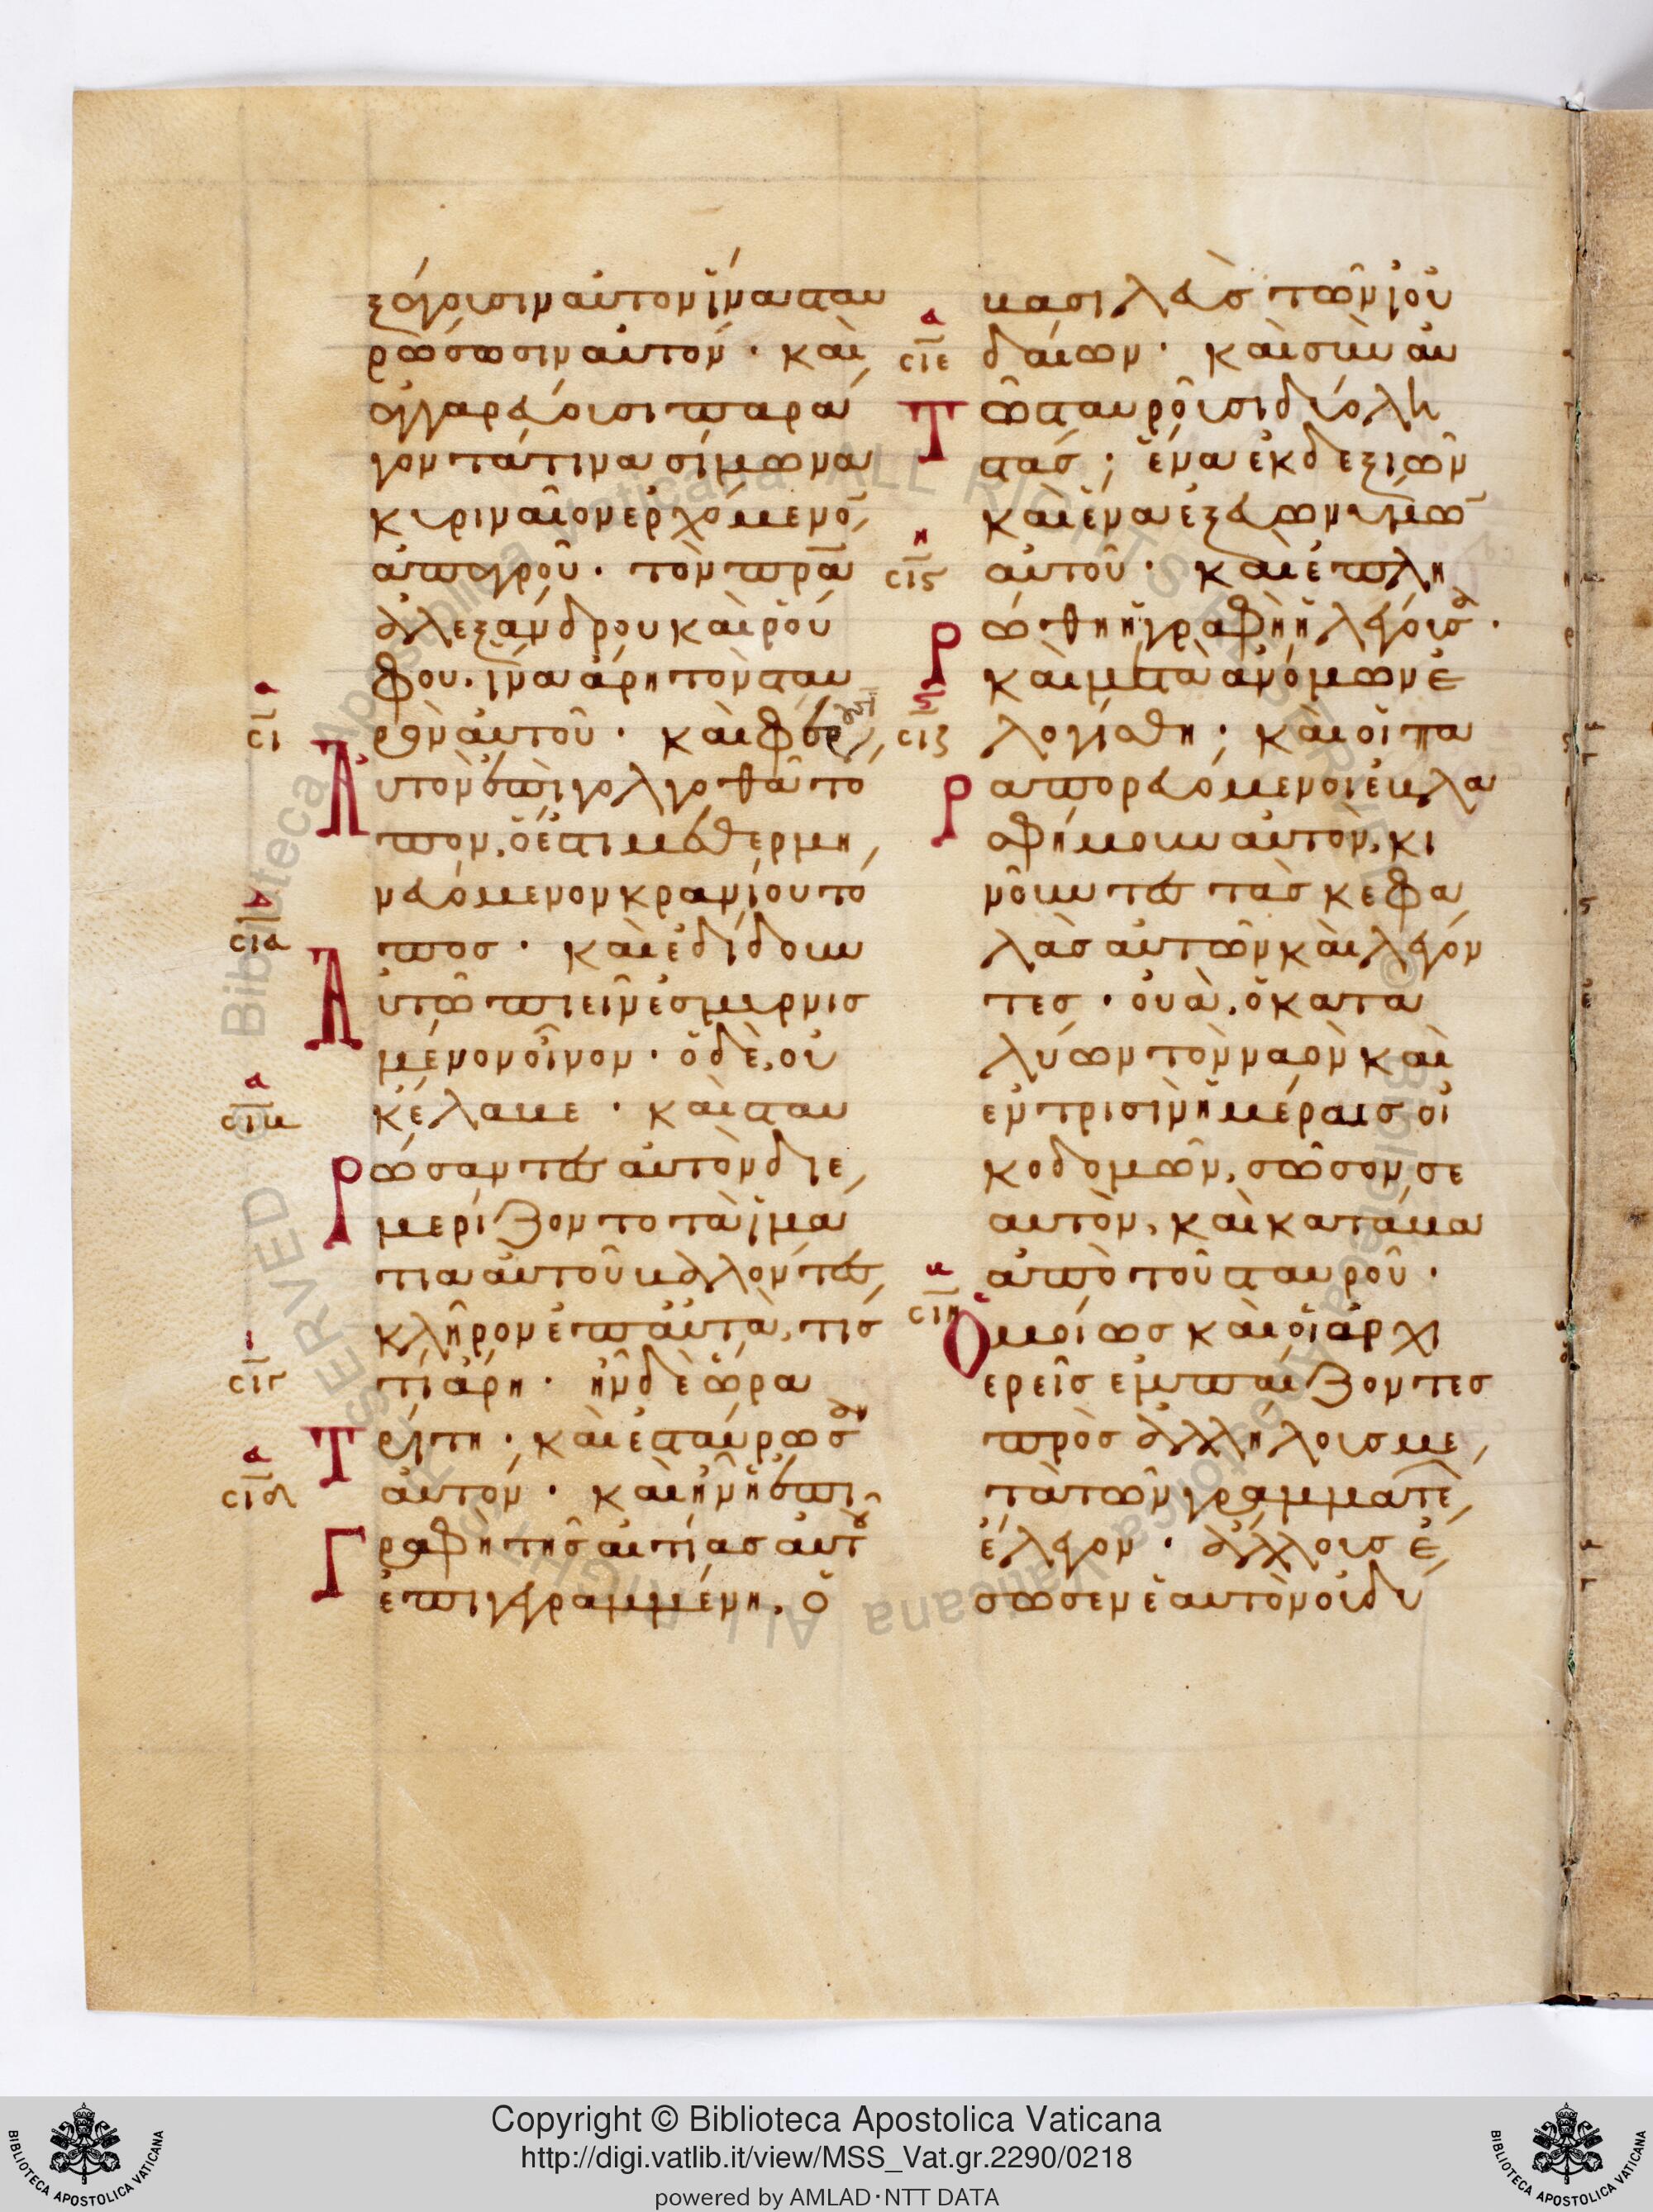 ξάγουσιν αὐτὸν ἵνα σταυ
ρώσωσιν αὐτόν· καὶ
ἀγγαρεύουσι παρά
γοντά τινα σίμωνα
κυριναῖον ἐρχόμενο̅
ἀπ᾽ ἀγροῦ· τὸν π̅ρ̅α̅
ἀλεξάνδρου καὶ ῥού
φου· ἵνα ἄρη τὸν σταυ
ρὸν αὐτοῦ· καὶ φέρουσιν
Αὐτὸν ἐπὶ γολγοθᾶ τό
πον, ὅ ἐστι μεθερμη
νευόμενον κρανίου τό
πος· καὶ ἐδίδουν
Αὐτῶ πιεῖν ἐσμυρνισ
μένον οἶνον· ὁ δὲ, οὐ
κ ἔλαβε· καὶ σταυ
Ρώσαντες αὐτὸν διε
μερίζοντο τὰ ἱμά
τια αὐτοῦ βάλλοντες
κλῆρον ἐπ᾽ αὐτὰ, τίς
τί ἄρη· ἦν δὲ ὥρα
Τρίτη· καὶ ἐσταύρωσαν
αὐτόν· καὶ ἦν ἡ ἐπι
Γραφὴ τῆς αἰτίας αὐτοῦ
ἐπιγεγραμμένη, ὁ
βασιλεὺς τῶν ἰου
δαίων· καὶ σὺν αὐ
Τῶ σταυροῦσι δύο λη
στάς· ἕνα ἐκ δεξιῶν
καὶ ἕνα ἐξ εὐωνύμω̅
αὐτοῦ· καὶ ἐπλη
Ρώθη ἡ γραφὴ ἡ λέγουσα·
καὶ μετὰ ἀνόμων ἐ
λογίσθη· καὶ οἱ πα
Ραπορευόμενοι ἐβλα
σφήμουν αὐτὸν, κι
νοῦντες τὰς κεφα
λὰς αὐτῶν καὶ λέγον
τες· οὐὰ, ὁ κατα
λύων τὸν ναὸν καὶ
ἐν τρισὶν ἡμέραις οἰ
κοδομῶν, σῶσον σε
αυτὸν, καὶ κατάβα
ἀπὸ τοῦ σταυροῦ·
Ὁμοίως καὶ οἱ ἀρχι
ερεῖς ἐμπαίζοντες
πρὸς ἀλλήλους με
τὰ τῶν γραμματέ
ἔλεγον· ἄλλους ἔ
σωσεν ἑαυτὸν οὐ δύ
σι
σια
σιβ
σιγ
σιδ
σιε
σιϛ
σιζ
σιη
Copyright © Biblioteca Apostolica Vaticana
http://digi.vatlib.it/view/MSS_Vat.gr.2290/0218
powered by AMLAD·NTT DATA
BIBLIOTECA APOSTOLICA VATICANA
BIBLIOTECA APOSTOLICA VATICANA